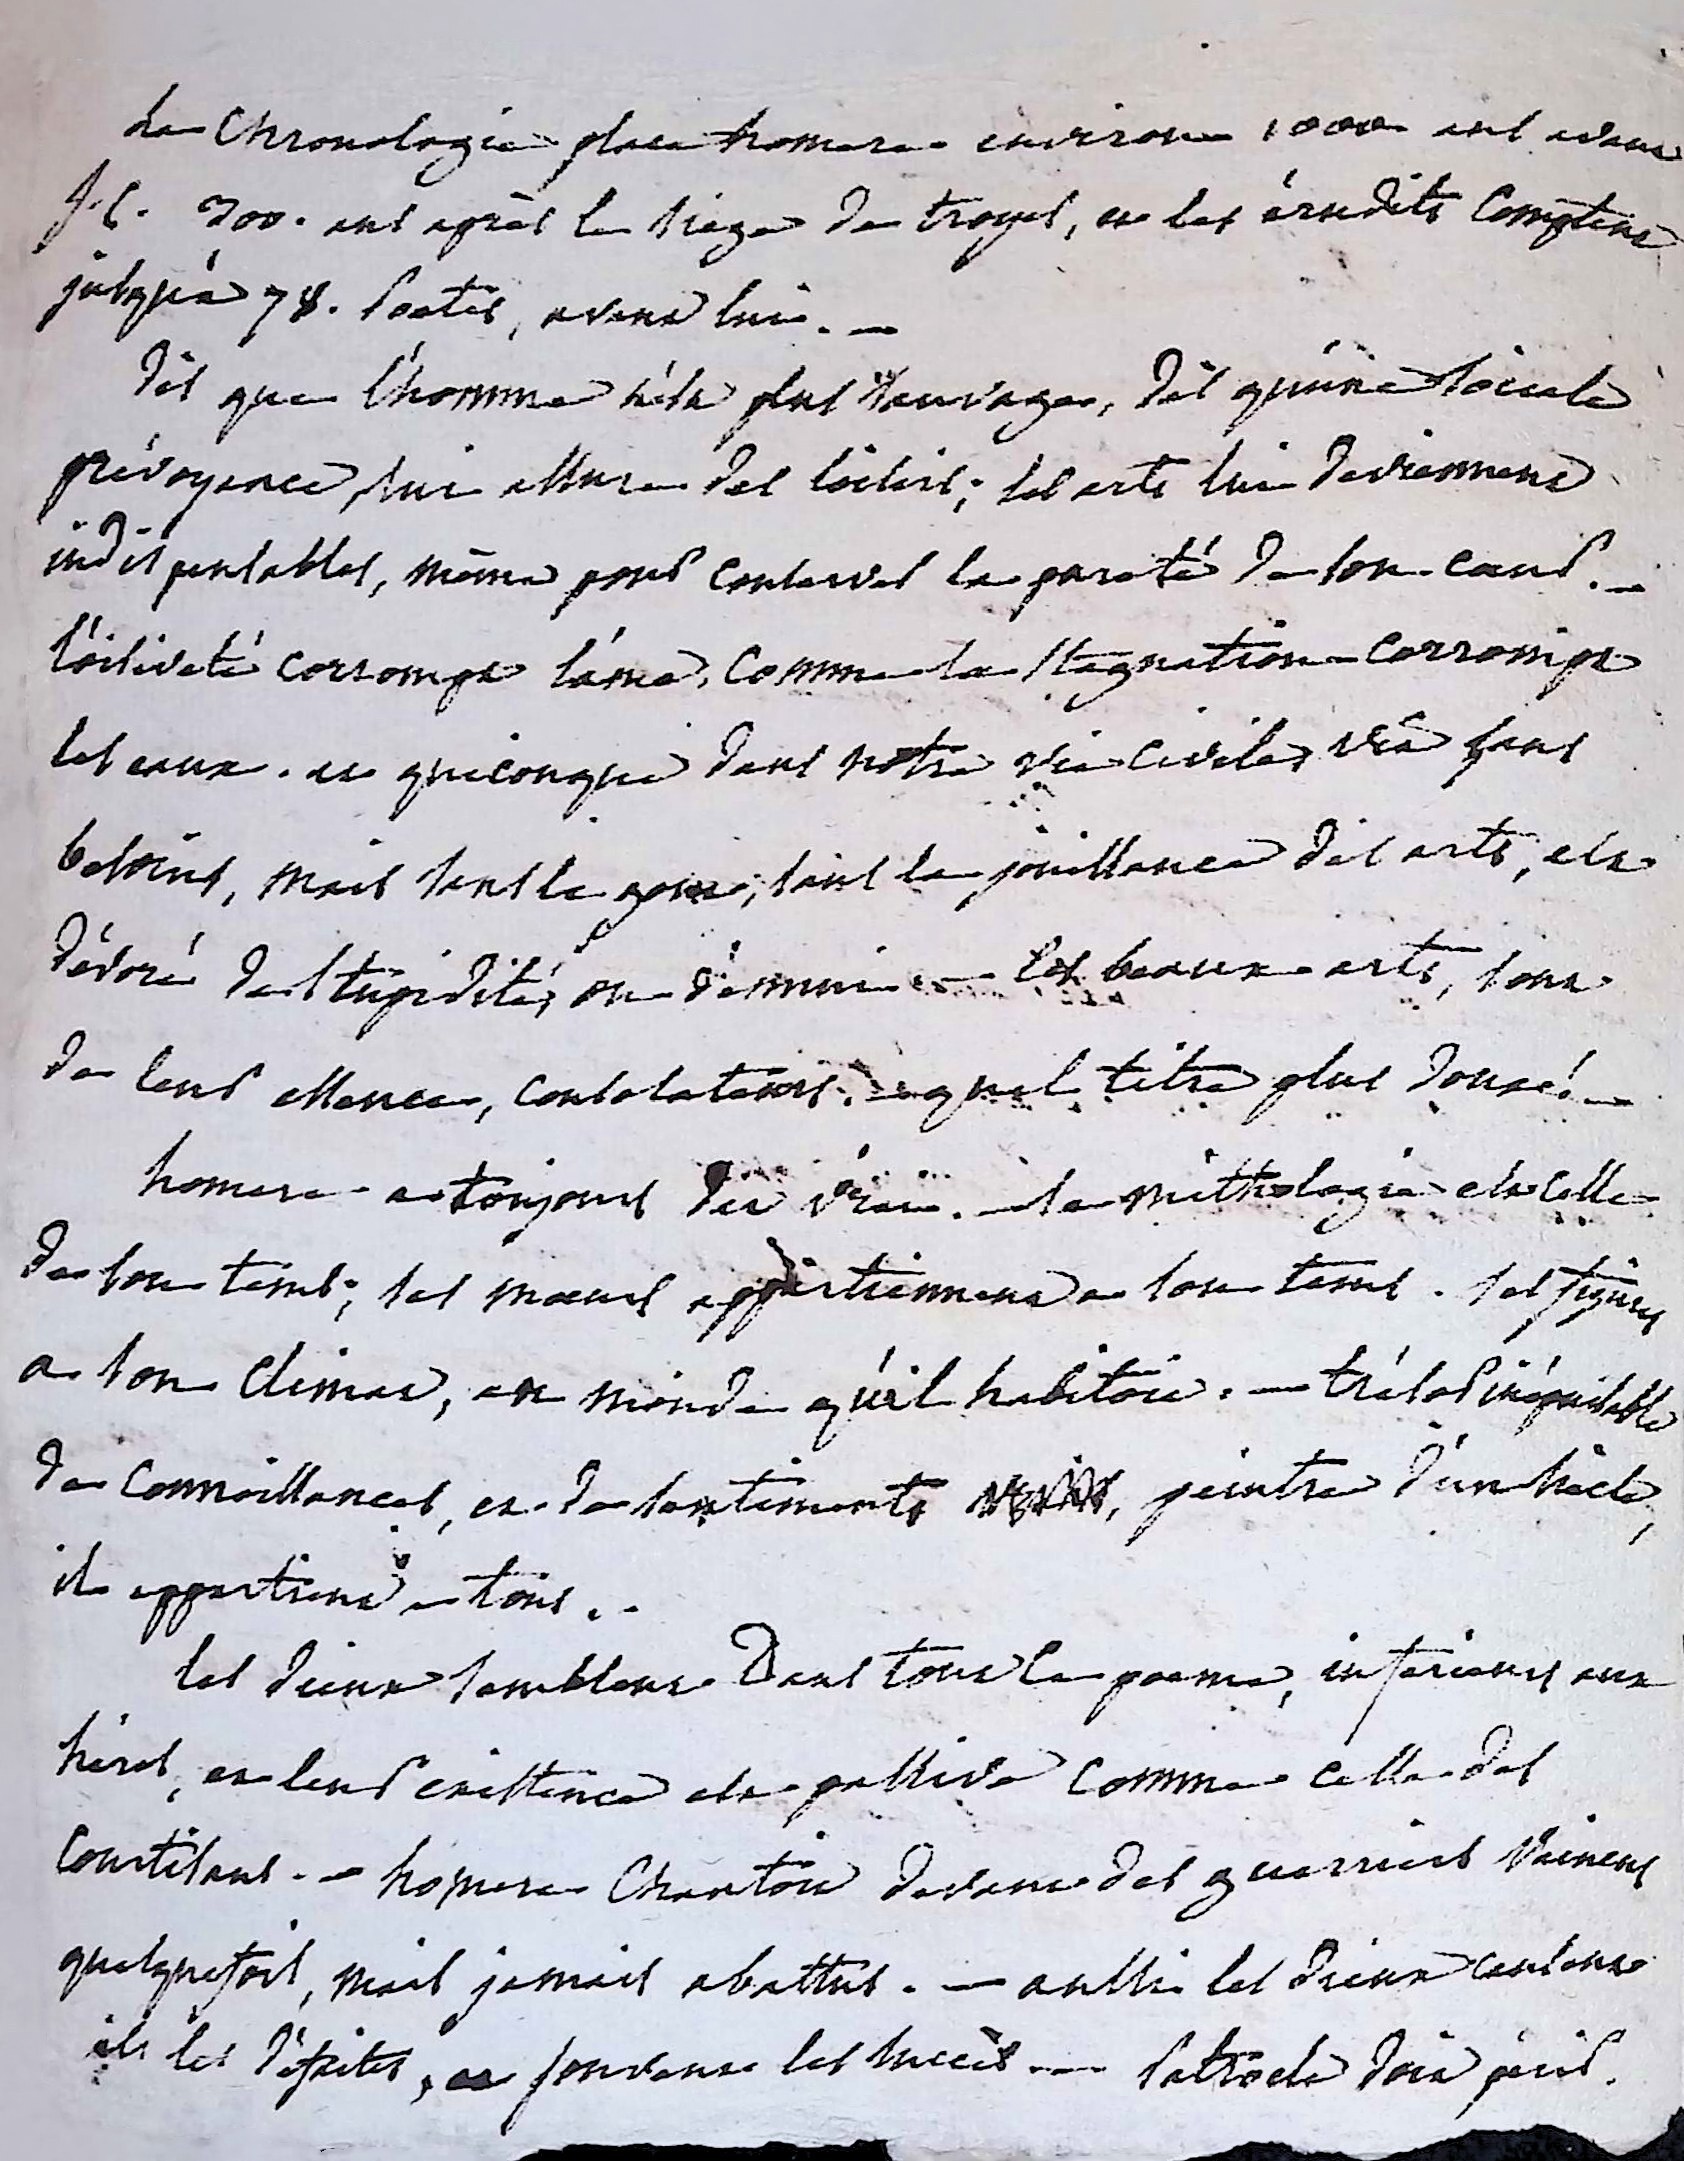 La Chronologie place homere environ 1000 ans avant
J. C. 300. ans après le siege de troyes, et les érudits comptent
jusqu'à 78. Poetes, avant lui. —
Dès que l'homme n'est plus sauvage, dès qu'une sociale
prévoyance, lui assure des loisirs; les arts lui deviennent
indispensables, même pour conserver la pureté de son cœur. —
l'oisiveté corrompt l'âme, comme la stagnation corrompt
les eaux. et quiconque dans notre vie civile, vit sans
besoins, mais sans le gout, sans la jouissance des arts, est
dévoré de stupidité, ou d'ennui. — les beaux arts, sont
de leur essence, consolateurs. — quel titre plus doux! —
homere a toujours été vrai. — sa mithologie est celle
de son tems; ses mœurs appartiennent a son tems. ses figures
a son climat, au monde qu'il habitoit. — trésor inépuisable
de connoissances, et de sentiments, peintre d'un siecle,
il appartient a tous. .
les dieux semblent dans tout le poeme, inferieurs aux
héros, et leur existence est passive comme celle des
courtisans. — homere chantoit devant des guerriers vaincus
quelquefois, mais jamais abattus. — aussi les dieux causent
ils les défaites, et souvent les succès. — Patrocle doit périr.